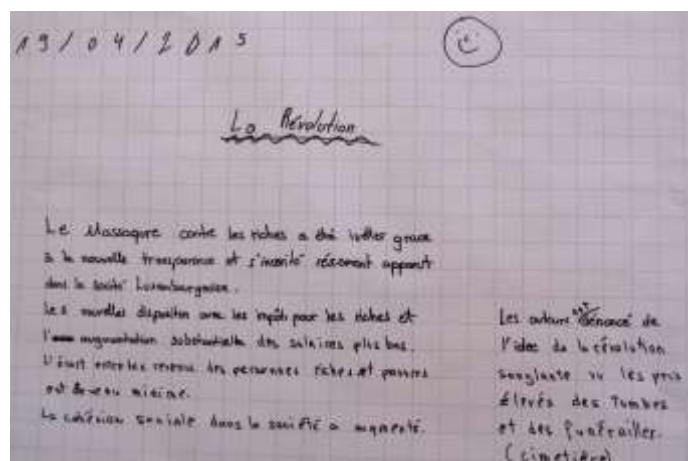 19/04/2015
La Révolution
Le Massaqure contre les riches a été grace
à la nouvelle transparence et récement apparut
dans la société Luxembourgeoise.
Les nouvelles avec les impôt pour les riches et
l' augmentation substantielle des salaires plus bas.
L'écart entre les revenu des personnes riches et pauvres
est devenu minime.
La cohésion sociale dans la société a augmenté.
Les auteurs ont dénoncé de
l'idée de la révolution
sanglante vu les prix
élevés des Tombes
et des funérailles.
(cimetière)